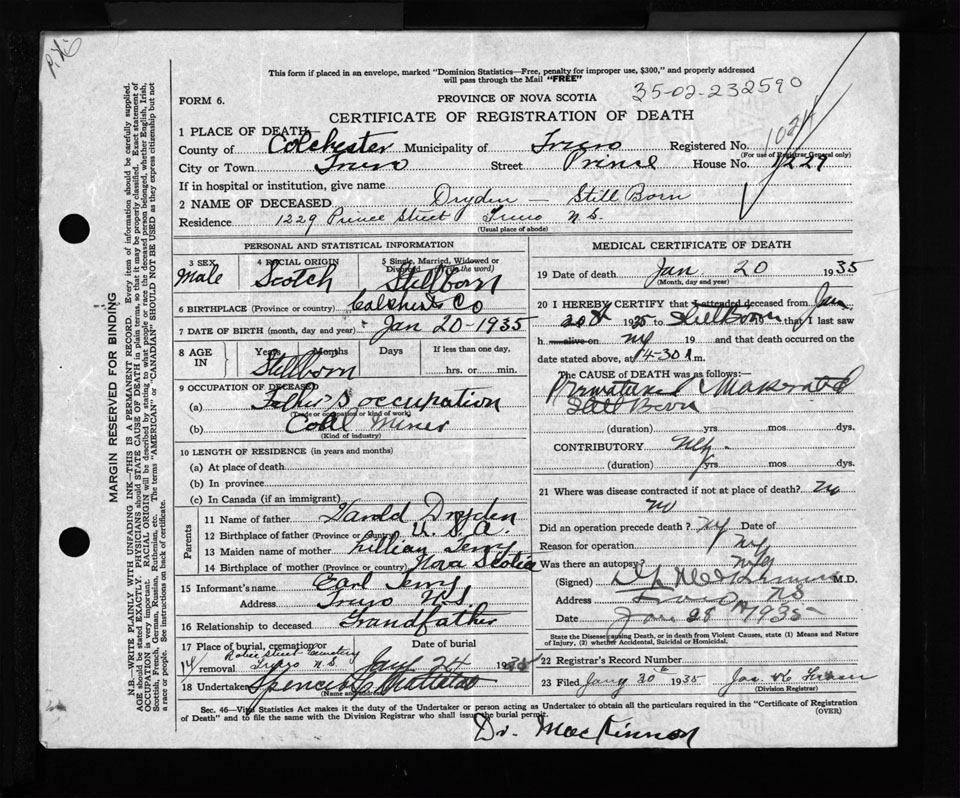 This form if placed in an envelope, marked "Dominion Statistics—Free, penalty for improper use, $300," and properly addressed
will pass through the Mail "FREE"
35-02-232590
FORM 6.
PROVINCE OF NOVA SCOTIA
CERTIFICATE OF REGISTRATION OF DEATH
1024
1 PLACE OF DEATH
County of Colchester Municipality of Truro Registered No.
(For use of Registrar General only)
City or Town Truro Street Prince House No. 1229
If in hospital or institution, give name
2 NAME OF DECEASED Dryden — Still Born
Residence 1229 Prince Street Truro N.S.
(Usual place of abode)
PERSONAL AND STATISTICAL INFORMATION
3 SEX 4 RACIAL ORIGIN 5 Single, Married, Widowed or Divorced (Write the word)
Male Scotch Stillborn
6 BIRTHPLACE (Province or country) Colchester Co
7 DATE OF BIRTH (month, day and year) Jan 20-1935
8 AGE IN Years Months Days If less than one day,
Stillborn hrs. or min.
9 OCCUPATION OF DECEASED
(a) Father's occupation
(Trade or occupation or kind of work)
(b) Coal Miner
(Kind of industry)
10 LENGTH OF RESIDENCE (in years and months)
(a) At place of death
(b) In province
(c) In Canada (if an immigrant)
Parents
11 Name of father Harold Dryden
12 Birthplace of father (Province or country) U.S.A.
13 Maiden name of mother Lillian
14 Birthplace of mother (Province or country) Nova Scotia
15 Informant's name Earl
Address Truro N.S.
16 Relationship to deceased Grandfather
17 Place of burial, cremation or removal Date of burial
Robie Street Cemetery
Truro N.S. Jany 24 1935
18 Undertaker Spencer
(Name and address)
MEDICAL CERTIFICATE OF DEATH
19 Date of death Jan. 20 1935
(Month, day and year)
20 I HEREBY CERTIFY that I attended deceased from Jan.
20th 1935 to Still Born 19 that I last saw
h alive on 19 and that death occurred on the
date stated above, at 4-30 m.
The CAUSE of DEATH was as follows:
Still Born
(duration) yrs mos dys.
CONTRIBUTORY
(duration) yrs mos. dys.
21 Where was disease contracted if not at place of death? No
No
Did an operation precede death? Date of
Reason for operation
Was there an autopsy?
(Signed) M.D.
Address Truro NS
Date 1935
State the Disease causing Death, or in death from Violent Causes, state (1) Means and Nature
of Injury, (2) whether Accidental, Suicidal or Homicidal.
22 Registrar's Record Number
23 Filed Jany 30th 1935
(Division Registrar)
Sec. 46—Vital Statistics Act makes it the duty of the Undertaker or person acting as Undertaker to obtain all the particulars required in the "Certificate of Registration
of Death" and to file the same with the Division Registrar who shall issue the burial permit.
(OVER)
Dr. MacKinnon
MARGIN RESERVED FOR BINDING
N.B.—WRITE PLAINLY WITH UNFADING INK—THIS IS A PERMANENT RECORD. Every item of information should be carefully supplied.
AGE should be stated EXACTLY. PHYSICIANS should STATE CAUSE OF DEATH in plain terms, so that it may be properly classified. Exact statement of
OCCUPATION is very important. RACIAL ORIGIN will be described by stating to what people or race the deceased person belonged, whether English, Irish,
Scottish, French, German, Russian, Ruthenian, etc. The terms "AMERICAN" or "CANADIAN" SHOULD NOT BE USED as they express citizenship but not
a race or people. See instructions on back of certificate.